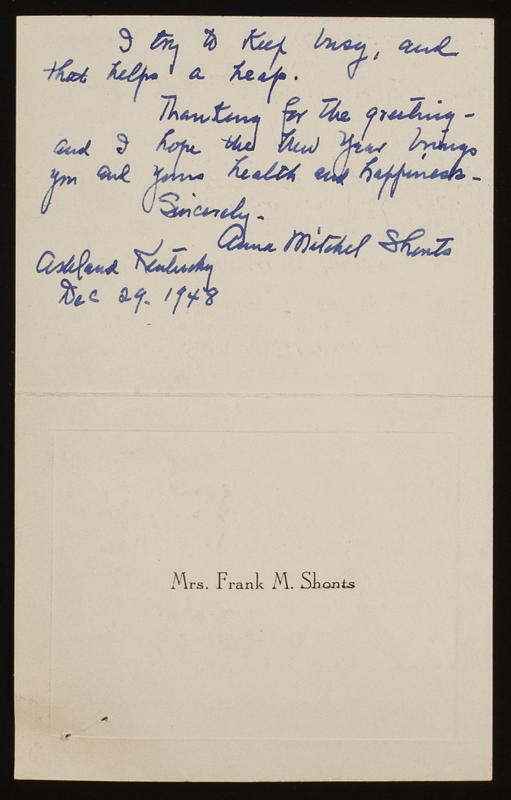 I try to keep busy, and
that helps a heap.
Thanking for the greeting -
and I hope the New Year brings
you and yours health and happiness -
Sincerely -
Anna Mitchel Shonts
Ashland Kentucky
Dec 29 - 1948
Mrs. Frank M. Shonts